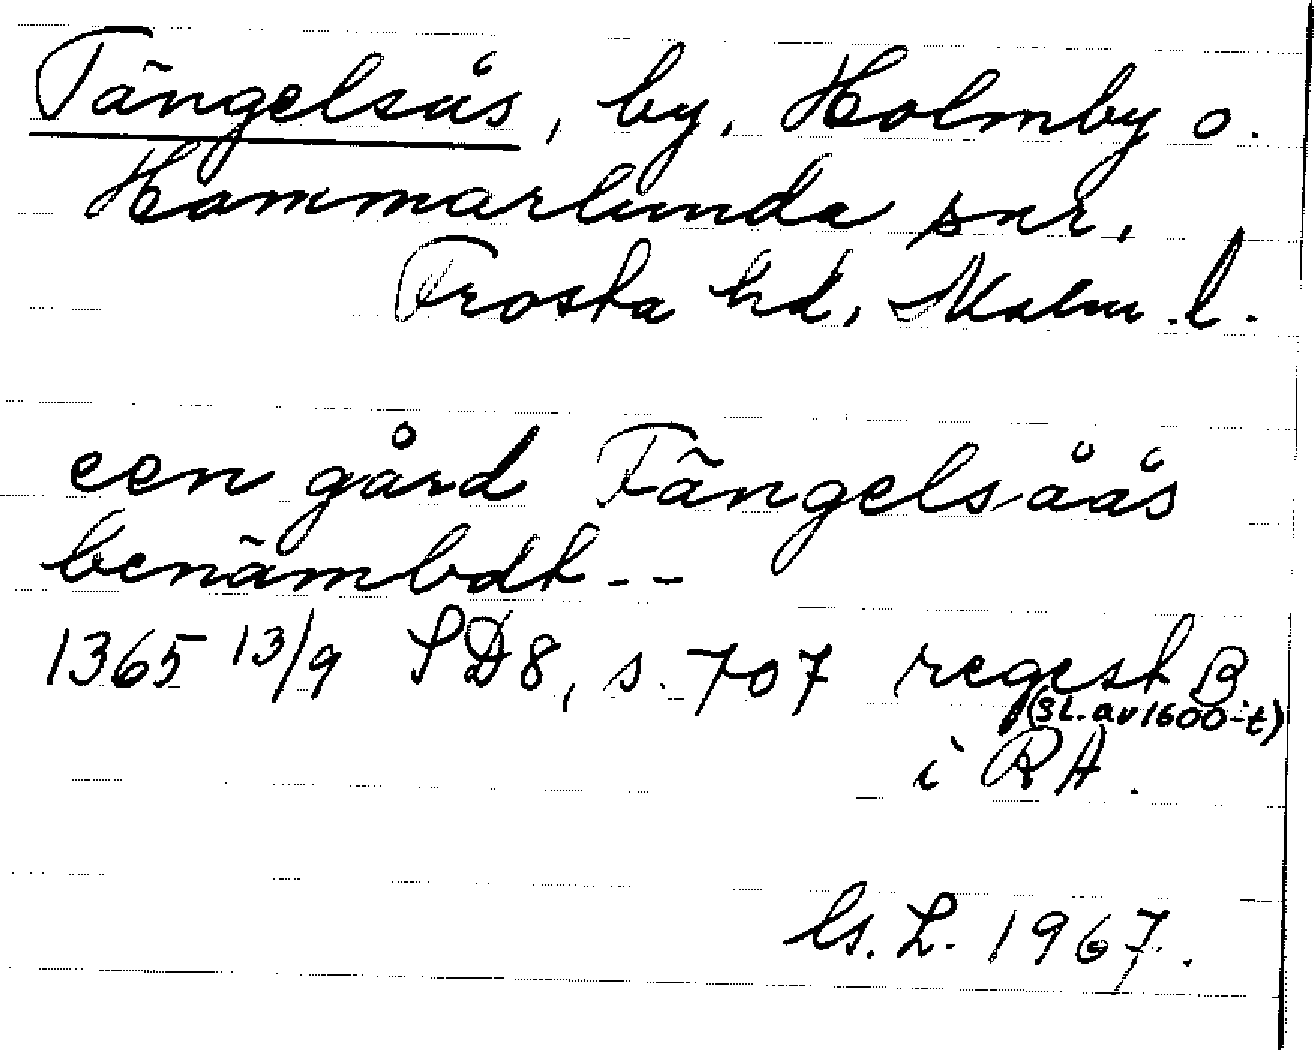 Tängelsås, by, Holmby o.
Hammarlunda snr,
Frosta hd, Malm. l.
een gård Fängelsåås
benämbdt --
1365 13/9 SD8, s. 707 regest B
(sl. av 1600-t)
i RA.
Cs. L. 1967.